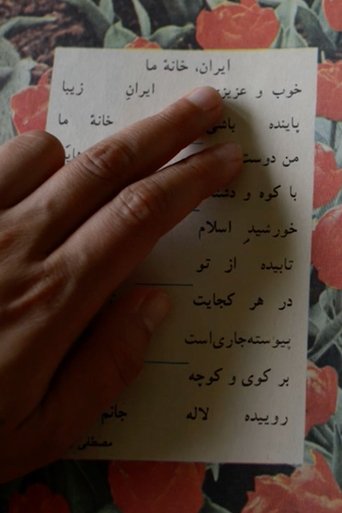 ایران، خانهٔ ما
خوب و عزیزی ایرانِ زیبا
پاینده باشی خانهٔ ما
من دوست
با کوه و
خورشیدِ اسلام
تابیده از تو
در هر کجایت
پیوسته‌جاری‌است
بر کوی و کوچه
روییده لاله جانم
مصطفی